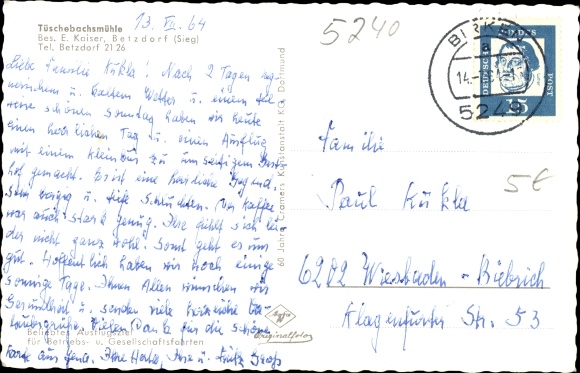 13. VII. 64
Tüschebachsmühle
Bes. E. Kaiser, Betzdorf (Sieg)
Tel. Betzdorf 21 26
Liebe Familie Kukla! Nach 2 Tagen reg-
nerischem u. kaltem Wetter u. einem teil-
weise schönen Sonntag haben wir heute
einen herrlichen Tag u. einen Ausflug
mit einem Kleinbus zu umseitigem Gast-
hof gemacht. Es ist eine herrliche Gegend,
sehr bergig u. tiefe Schluchten. Der Kaffee
war auch stark genug. Ilse fühlt sich lei-
der nicht ganz wohl. Sonst geht es uns
gut. Hoffentlich haben wir noch einige
sonnige Tage. Ihnen Allen wünschen wir
Gesundheit u. senden viele herzliche Ur-
laubsgrüße. Vielen Dank für die schöne
Karte aus Ihre Ilse u.
Beliebtes Ausflugsziel
für Betriebs- u. Gesellschaftsfahrten
60 Jahre Cramers Kunstanstalt KG, Dortmund
Agfa
Originalfoto
5240
BIRKEN
a
14.
5249
DEUTSCHE
BUNDES
POST
15
5€
Familie
Paul Kukla
6202 Wiesbaden - Biebrich
Klagenfurter Str. 53